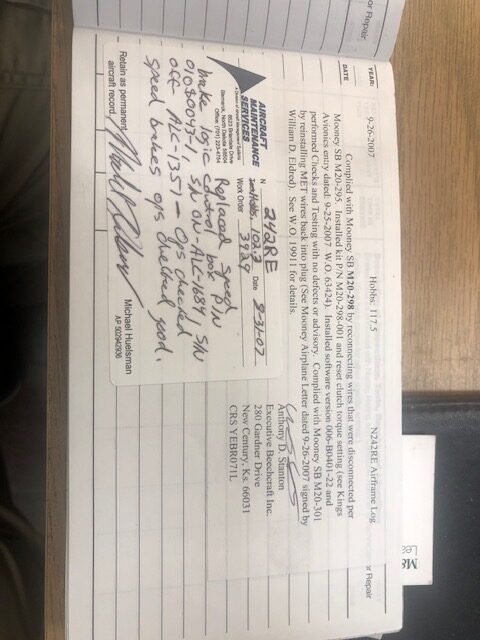 or Repair
YEAR:
DATE
9-26-2007 Hobbs: 117.5 N242RE Airframe Log
Complied with Mooney SB M20-298 by reconnecting wires that were disconnected per
Mooney SB M20-295. Installed kit P/N M20-298-001 and reset clutch torque setting (see Kings
Avionics entry dated: 9-25-2007 W.O. 63424). Installed software version 006-B0401-22 and
performed Checks and Testing with no defects or advisory. Complied with Mooney SB M20-301
by reinstalling MET wires back into plug (See Mooney Airplane Letter dated 9-26-2007 signed by
William D. Eldred). See W.O. 19911 for details.
Anthony D. Stanton
Executive Beechcraft Inc.
280 Gardner Drive
New Century, Ks. 66031
CRS YEBR071L
or Repair
AIRCRAFT
MAINTENANCE
SERVICES
Bismarck, North Dakota 58504
Office: (701) 223-4754
N 242RE
Hobbs 102.2 Date 8-31-07
Work Order 3929
Replaced speed
brake logic control box P/N
01080043-1, S/N ON-AL-1684, S/N
off AL-1351 - Ops checked
speed brakes ops checked good.
Michael Huelsman
AP 502942936
Retain as permanent
aircraft record.
M&
Lea